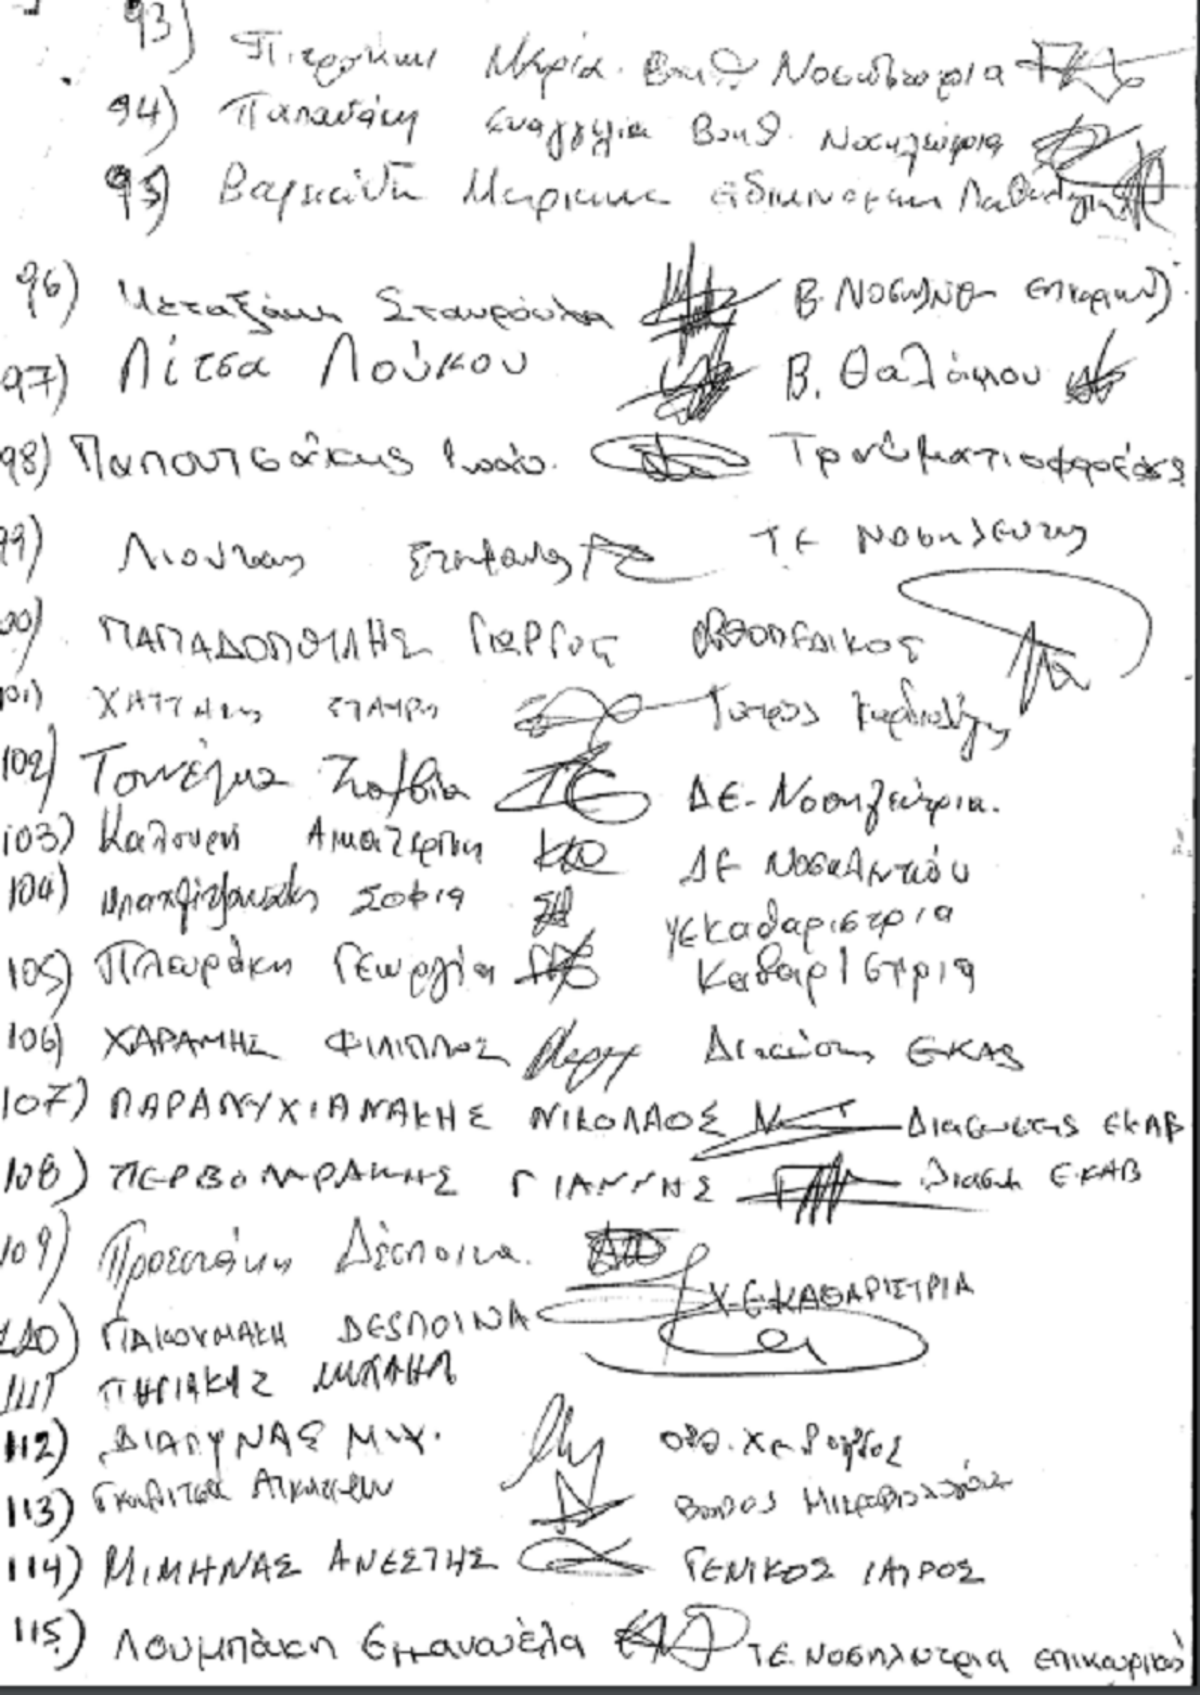 93) Μαρία Βοηθ Νοσηλεύτρια
94) Παπαδάκη Ευαγγελία Βοηθ. Νοσηλεύτρια
95) Μαρία ειδικευόμενη Παθολογίας
96) Μεταξάκη Σταυρούλα Β. Νοσηλευτ επικουρική)
97) Λίτσα Λούκου Β. Θαλάμου
98) Παπουτσάκης Τραυματιοφορέας
99) Λιούτας Στέφανος Τ.Ε Νοσηλευτής
100) ΠΑΠΑΔΟΠΟΥΛΗΣ ΓΙΩΡΓΟΣ ΟΡΘΟΠΕΔΙΚΟΣ
101) Ιατρός Καρδιολόγος
102) Σύλβια ΔΕ. Νοσηλεύτρια.
103) Καλουρή Αικατερίνη ΔΕ
104) Σοφια ΥΕ Καθαριστρια
105) Πλευράκη Γεωργία Καθαρίστρια
106) ΧΑΡΑΜΗΣ ΦΙΛΙΠΠΟΣ Διασώστης ΕΚΑΒ
107) ΠΑΡΑΝΥΧΙΑΝΑΚΗΣ ΝΙΚΟΛΑΟΣ Διασωστης ΕΚΑΒ
108) ΠΕΡΒΟΛΑΡΑΚΗΣ ΓΙΑΝΝΗΣ Διασω ΕΚΑΒ
109) Δέσποινα.
Υ.Ε ΚΑΘΑΡΙΣΤΡΙΑ
110) ΓΙΑΚΟΥΜΑΚΗ DESΠΟΙΝΑ
111) ΠΗΓΙΑΚΗΣ ΜΙΧΑΗΛ
112) ΔΙΑΛΥΝΑΣ ΜΙΧ. ΟΡΘ. Χειρούργος
113) Αικατερίνη Βοηθος Μικροβιολογίας
114) ΜΙΜΗΝΑΣ ΑΝΕΣΤΗΣ ΓΕΝΙΚΟΣ ΙΑΤΡΟΣ
115) Λουμπάκη Εμμανουέλα Τ.Ε. Νοσηλευτρια επικουρικό